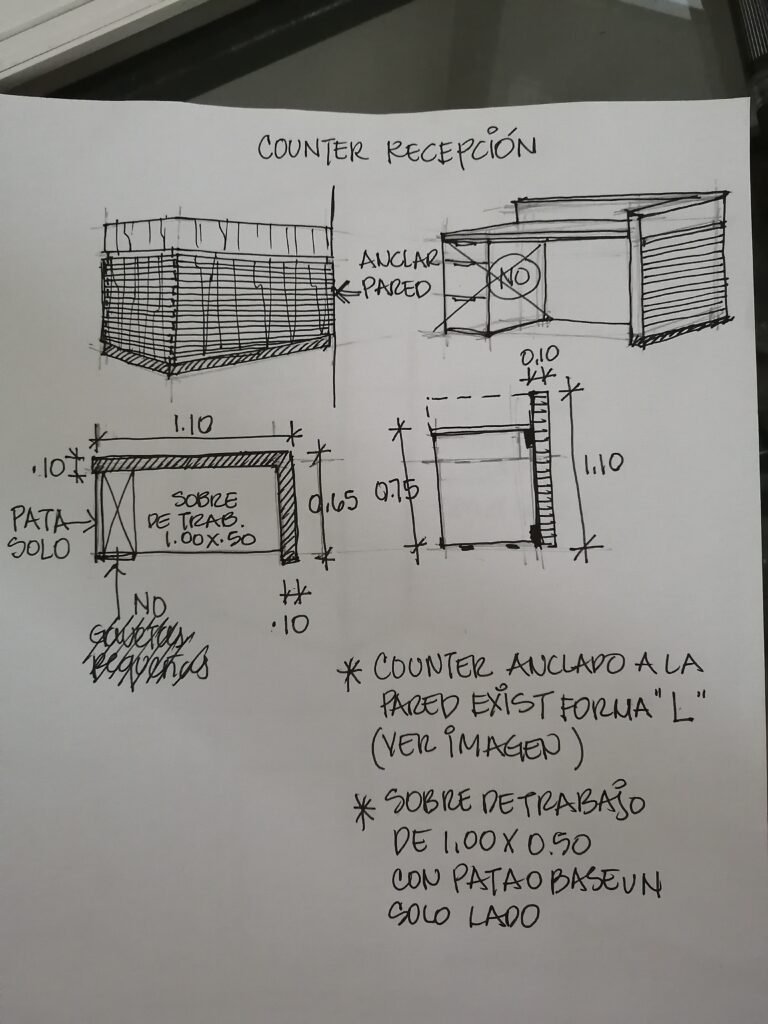 COUNTER RECEPCIÓN
ANCLAR
PARED
NO
0.10
1.10
.10
PATA
SOLO
SOBRE
DE TRAB.
1.00X.50
0.65
0.75
1.10
NO
GAVETAS
PEQUEÑAS
.10
* COUNTER ANCLADO A LA
PARED EXIST FORMA "L"
(VER IMAGEN)
* SOBRE DE TRABAJO
DE 1.00 X 0.50
CON PATA O BASE UN
SOLO LADO